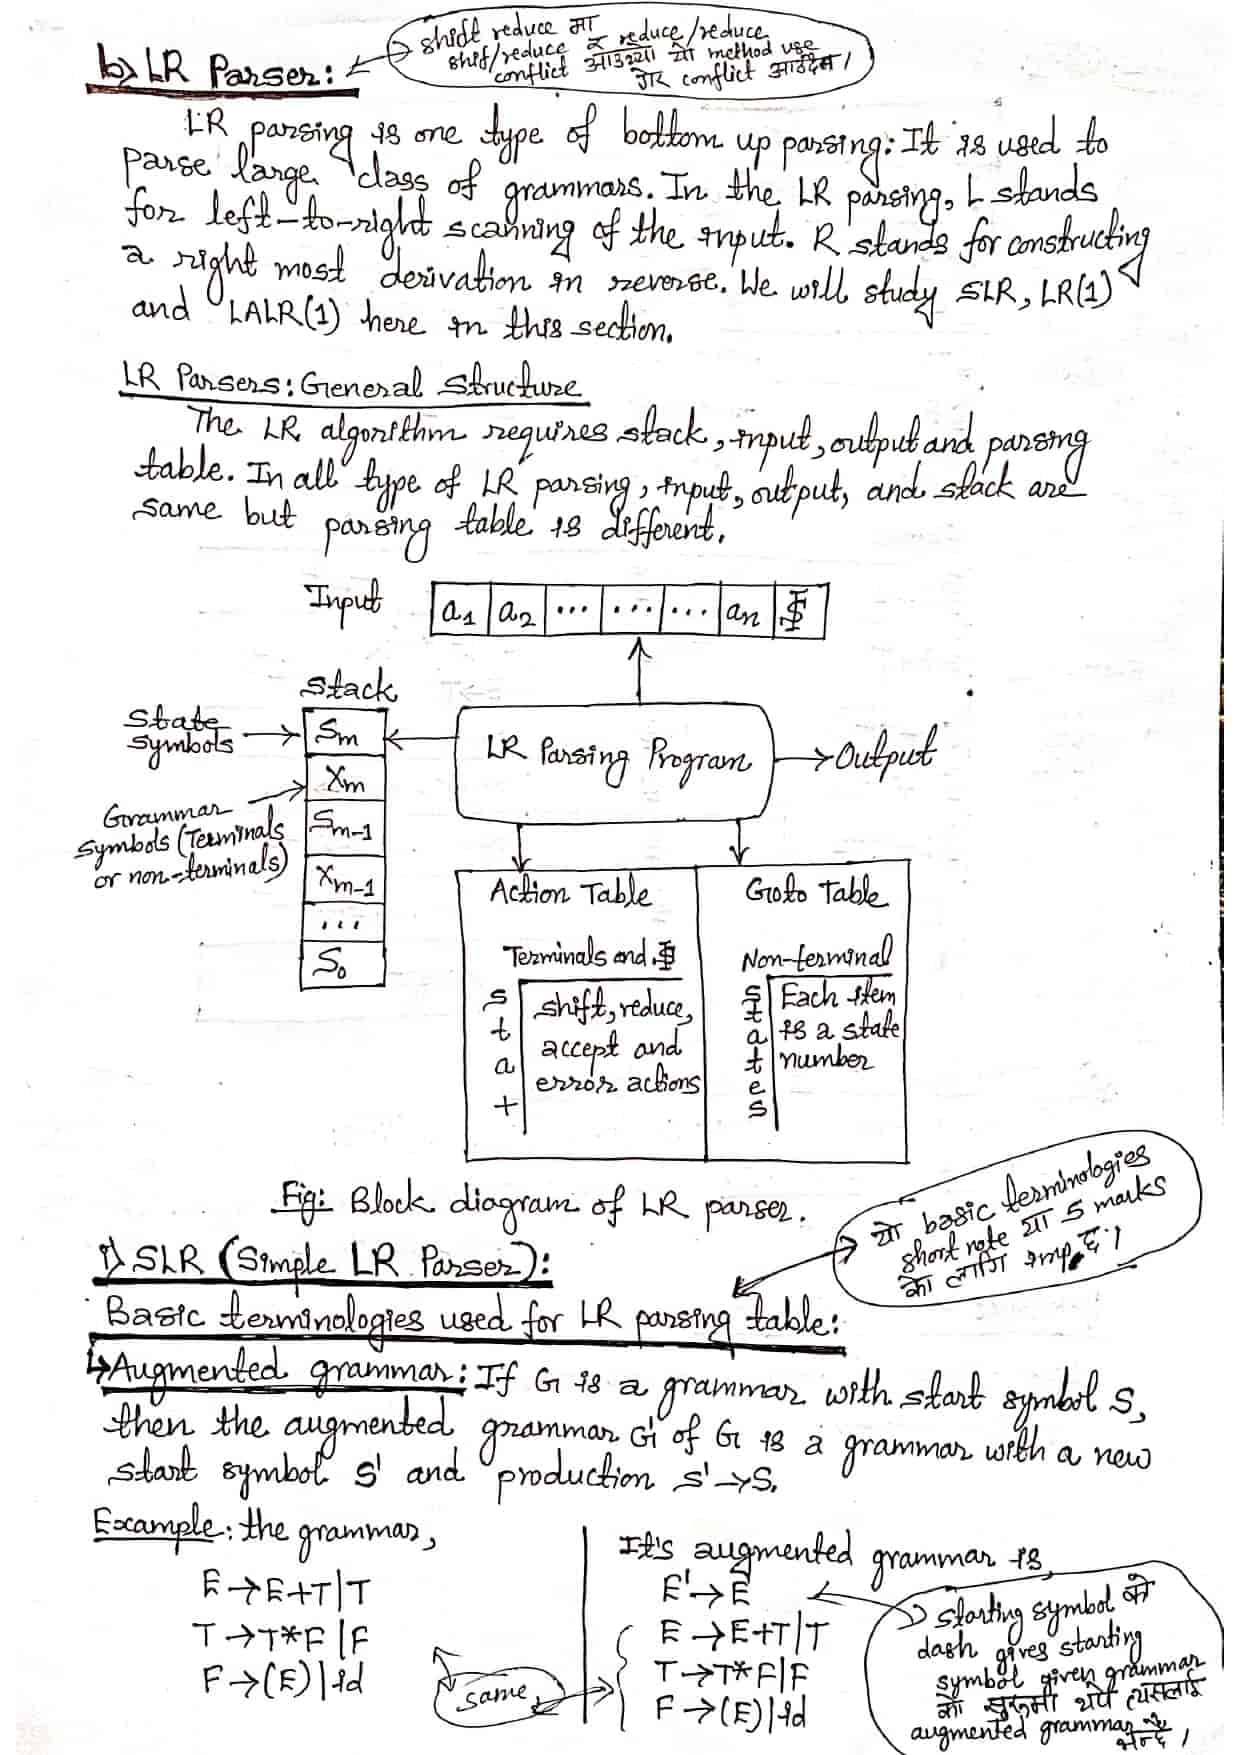 shift reduce मा
shift/reduce र reduce/reduce
conflict आउथ्यो यो method use
गरे conflict आउदैन।
b) LR Parser:
LR parsing is one type of bottom up parsing. It is used to
parse large class of grammars. In the LR parsing, L stands
for left-to-right scanning of the input. R stands for constructing
a right most derivation in reverse. We will study SLR, LR(1)
and LALR(1) here in this section.
LR Parsers: General Structure
The LR algorithm requires stack, input, output and parsing
table. In all type of LR parsing, input, output, and stack are
same but parsing table is different.
Input a1 a2 ... ... ... an $
Stack
State
symbols
Sm
Xm
Sm-1
Xm-1
...
S0
Grammar
symbols (Terminals
or non-terminals)
LR Parsing Program
Output
Action Table
Terminals and $
s
t
a
t
shift, reduce,
accept and
error actions
Goto Table
Non-terminal
s
t
a
t
e
s
Each item
is a state
number
Fig: Block diagram of LR parser.
यो basic terminologies
short note मा 5 marks
को लागि imp छ।
i) SLR (Simple LR Parser):
Basic terminologies used for LR parsing table:
↳ Augmented grammar: If G is a grammar with start symbol S,
then the augmented grammar G' of G is a grammar with a new
start symbol S' and production S'→S.
Example: the grammar,
E→E+T|T
T→T*F|F
F→(E)|id
same
It's augmented grammar is,
E'→E
E→E+T|T
T→T*F|F
F→(E)|id
starting symbol को
dash gives starting
symbol given grammar
को सुरुमा थपे त्यसलाई
augmented grammar भन्दछ।